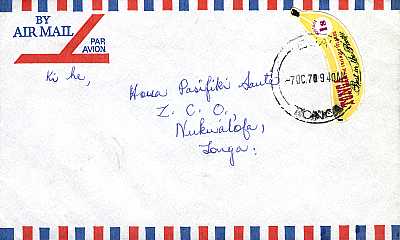 BY
AIR MAIL
PAR
AVION
Ki he,
Housa Pasifiki Sauté
Z. C. O,
Nukualofa,
Tonga:
-7 OC.70 9 40AM
TONGA